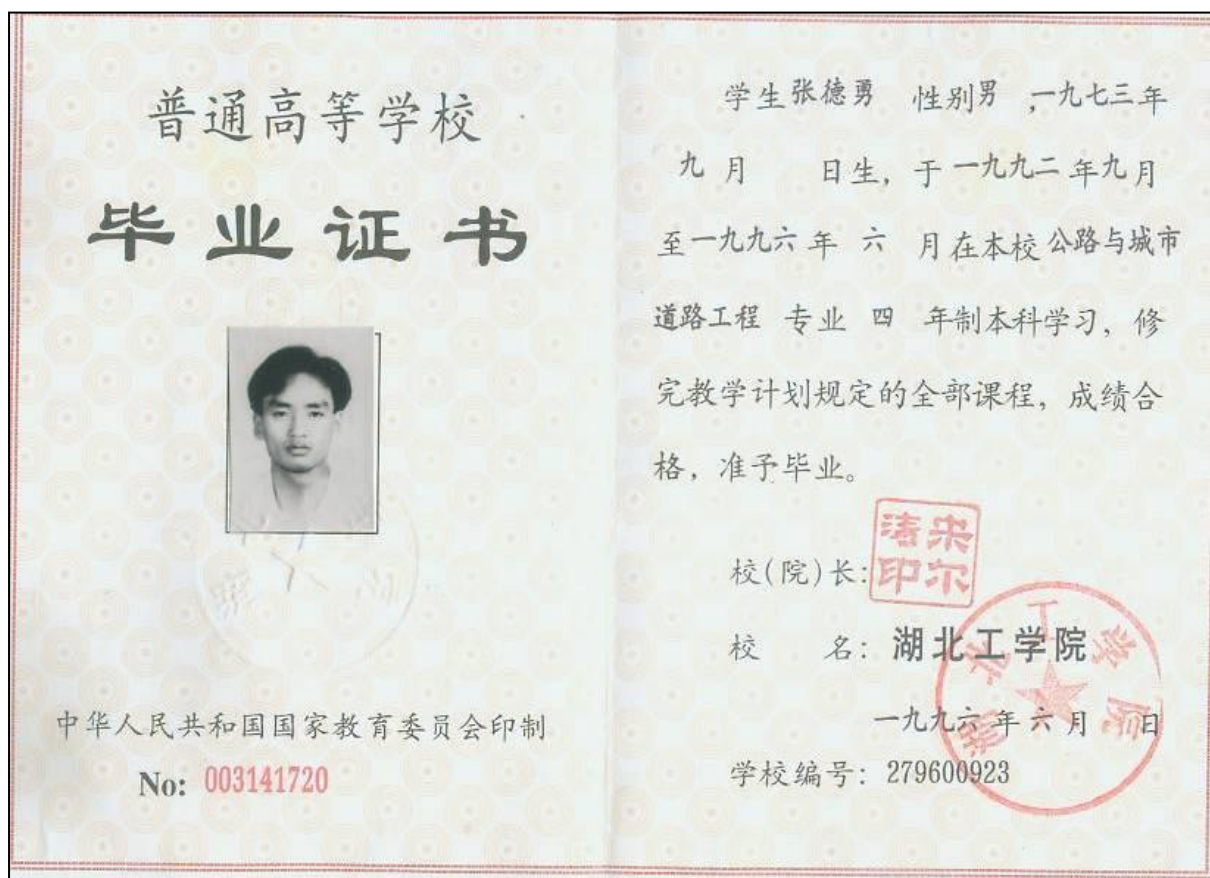 普通高等学校
毕业证书
中华人民共和国国家教育委员会印制
No: 003141720
学生张德勇 性别男,一九七三年
九月 日生，于一九九二年九月
至一九九六年 六 月在本校公路与城市
道路工程 专业 四 年制本科学习，修
完教学计划规定的全部课程，成绩合
格，准予毕业。
校(院)长:
宋尔涛印
校 名: 湖北工学院
湖北工学院
一九九六年六月 日
学校编号: 279600923